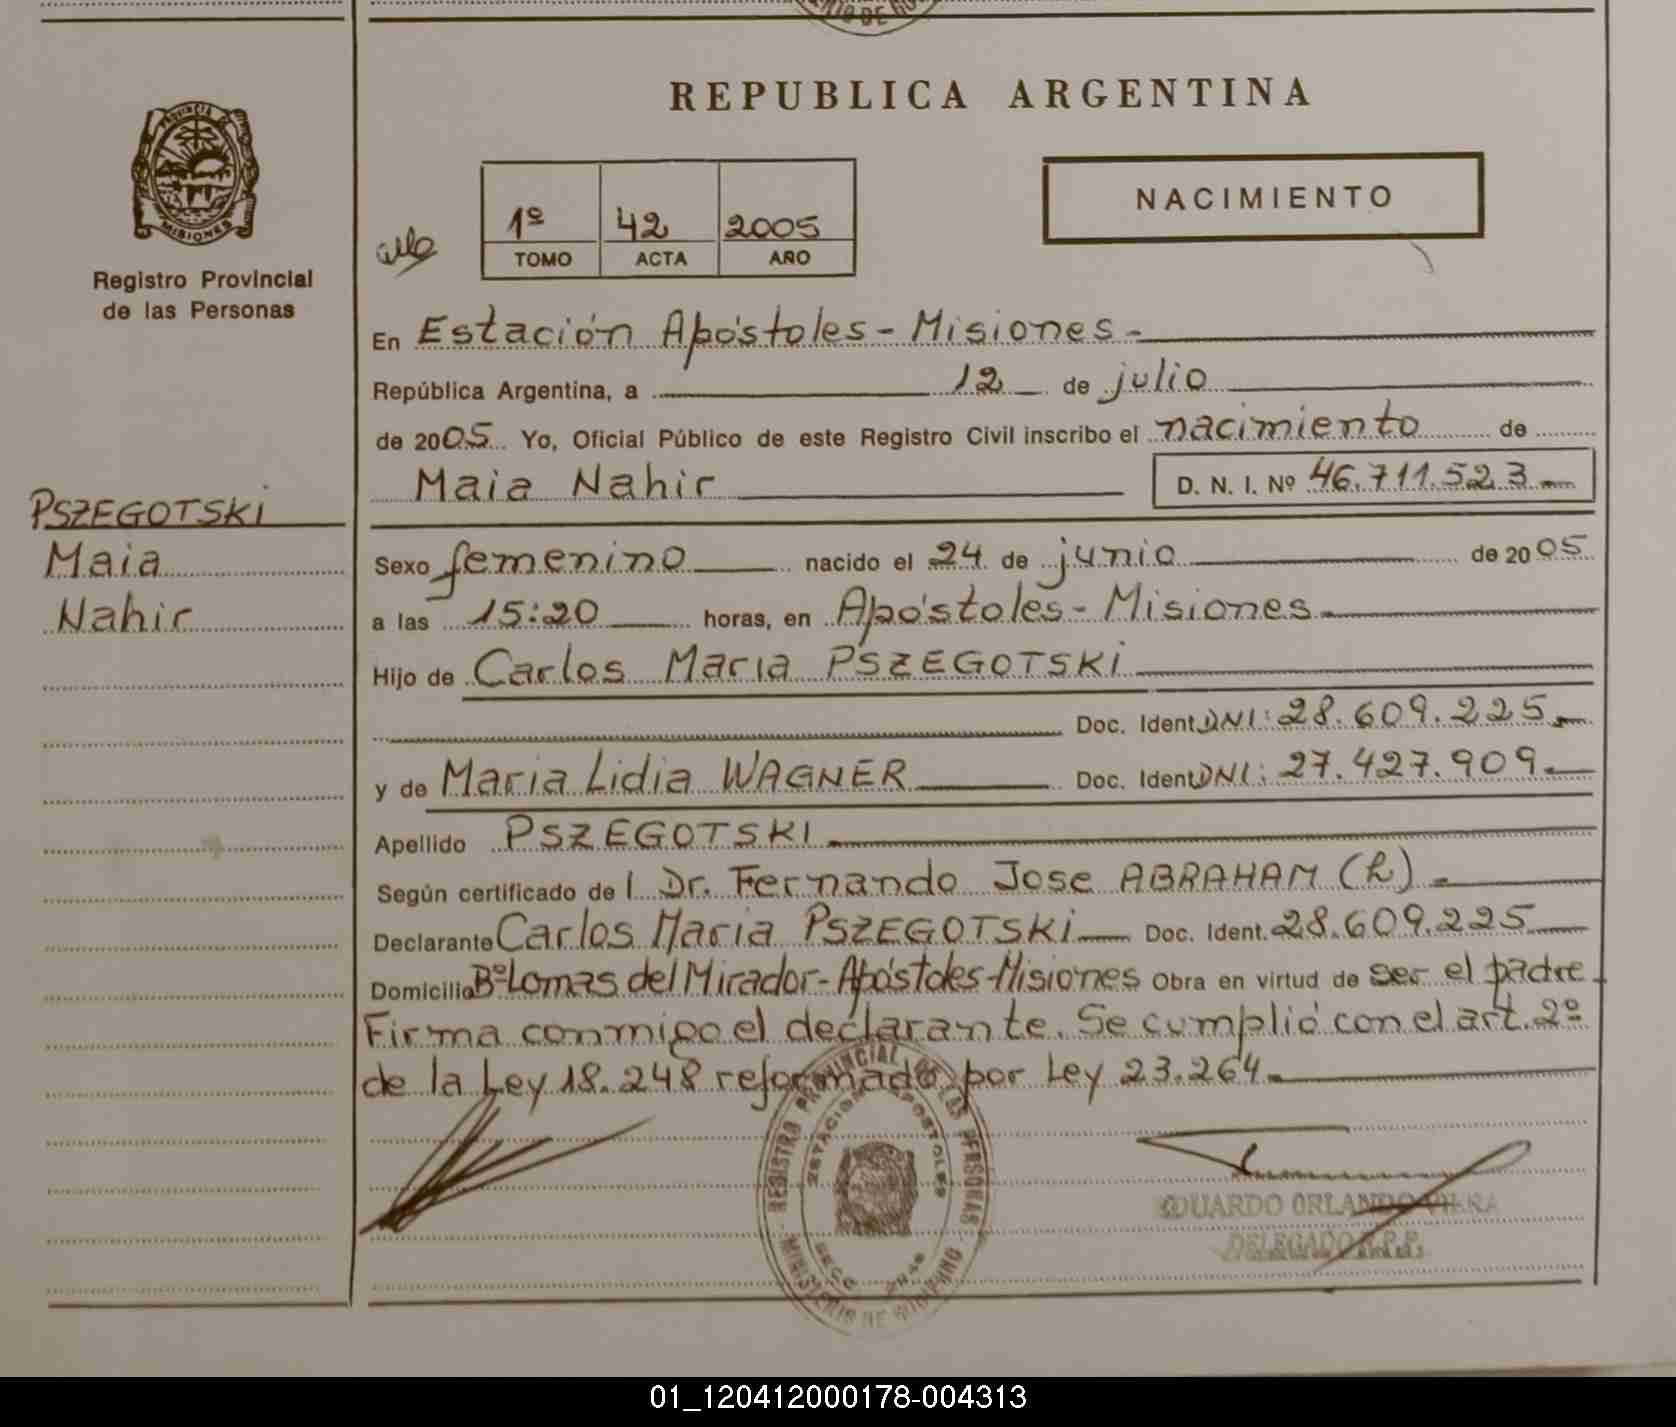 REPUBLICA ARGENTINA
PROVINCIA
MISIONES
Registro Provincial
de las Personas
1º 42 2005
TOMO ACTA AÑO
NACIMIENTO
En Estación Apóstoles - Misiones -
República Argentina, a 12 de julio
de 2005 Yo, Oficial Público de este Registro Civil inscribo el nacimiento de
Maia Nahir D. N. I. Nº 46.711.523
PSZEGOTSKI
Maia
Nahir
Sexo femenino nacido el 24 de junio de 2005
a las 15:20 horas, en Apóstoles - Misiones
Hijo de Carlos Maria PSZEGOTSKI
Doc. Ident. DNI: 28.609.225
y de Maria Lidia WAGNER Doc. Ident. DNI: 27.427.909
Apellido PSZEGOTSKI
Según certificado de l Dr. Fernando Jose ABRAHAM (h)
Declarante Carlos Maria PSZEGOTSKI Doc. Ident. 28.609.225
Domicilio Bº Lomas del Mirador - Apóstoles - Misiones Obra en virtud de ser el padre
Firma conmigo el declarante. Se cumplió con el art. 2º
de la Ley 18.248 reformado por Ley 23.264
REGISTRO PROVINCIAL DE LAS PERSONAS
ESTACION APOSTOLES
MINISTERIO DE GOBIERNO
EDUARDO ORLANDO
DELEGADO R.P.P.
01_120412000178-004313